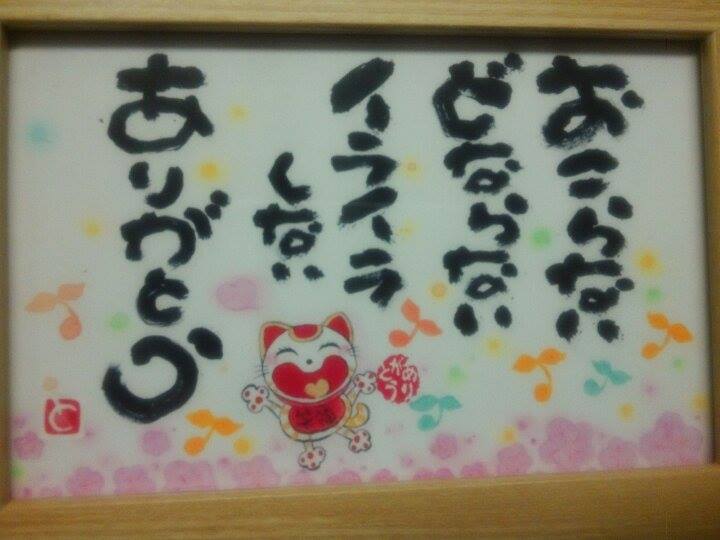 おこらない
どならない
イライラ
しない
ありがとう
ありがとう